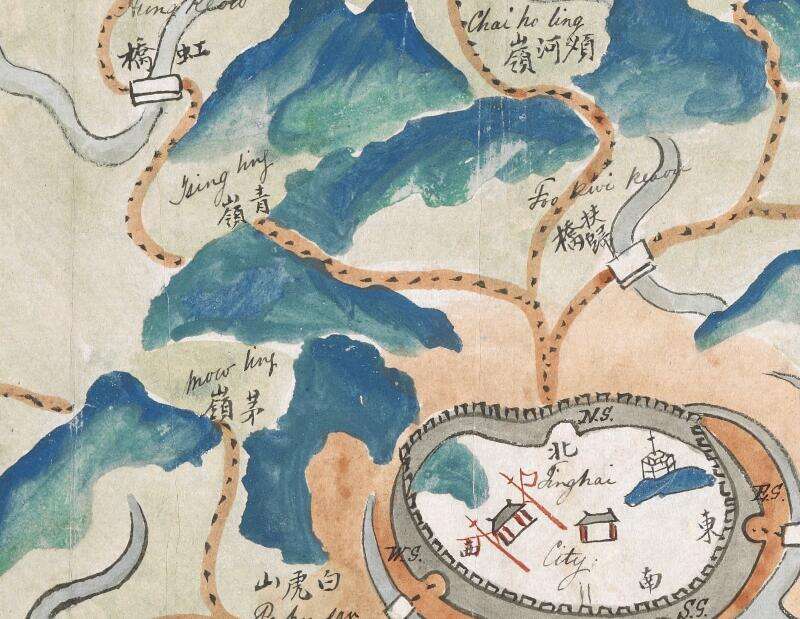 Hung keow
橋虹
Chai ho ling
嶺河
Tsing ling
嶺青
Foo kwi keaou
橋歸扶
mow ling
嶺茅
N.S.
北
Tinghai
E.S.
東
西
W.S.
City
南
S.S.
山虎白